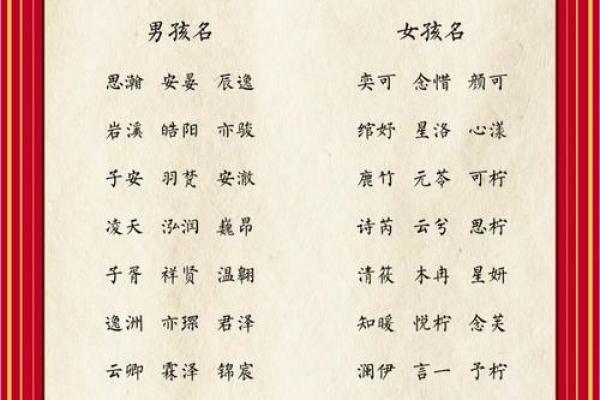 男孩名 女孩名
思瀚 安晏 辰逸 奕可 念惜 颜可
岩溪 皓阳 亦骏 绾妤 星洛 心漾
子安 羽梵 安澈 鹿竹 元苓 可柠
凌天 泓润 巍昂 诗芮 云兮 思柠
子胥 祥贤 温翱 清筱 木冉 星妍
逸洲 亦琛 君泽 知暖 悦柠 念芙
云卿 霖泽 锦宸 澜伊 言一 予柠